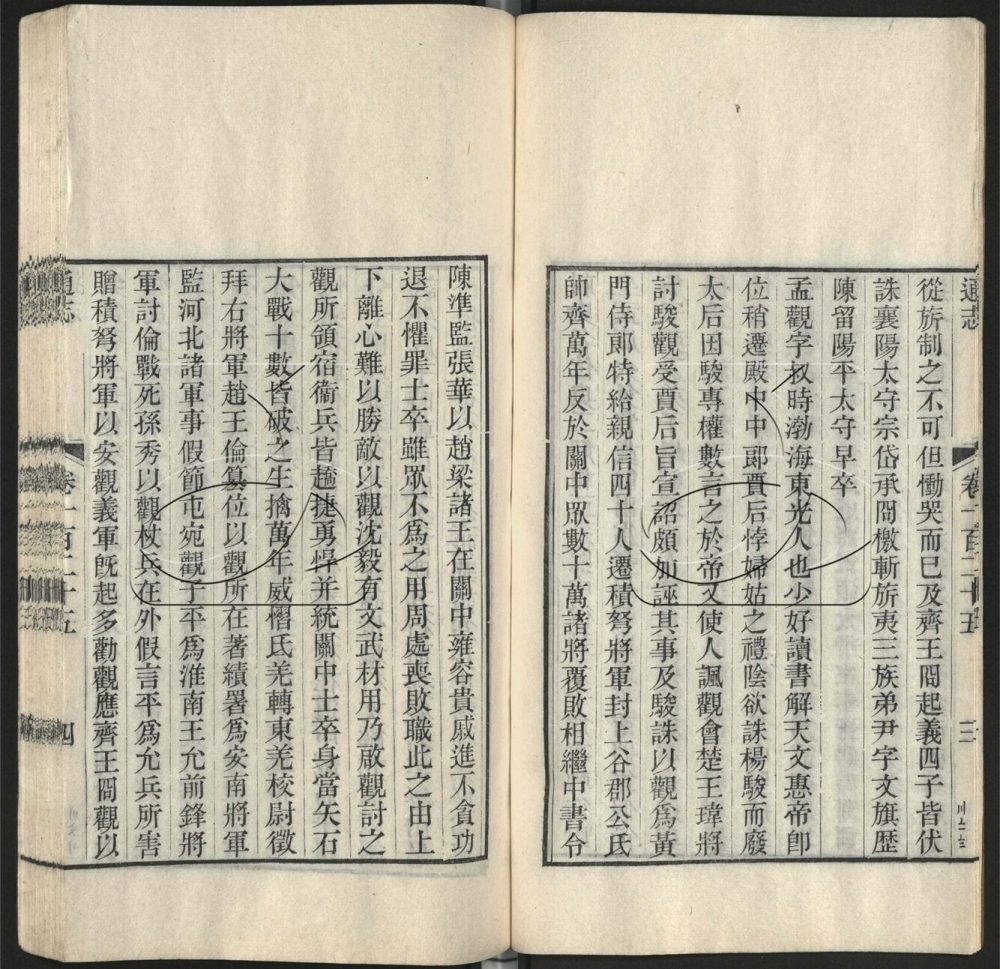 通志
卷一百二十五
三
從旂制之不可但慟哭而已及齊王冏起義四子皆伏
誅襄陽太守宗岱承冏檄斬旂夷三族弟尹字文旗歴
陳留陽平太守早卒
孟觀字叔時渤海東光人也少好讀書解天文惠帝卽
位稍遷殿中中郞賈后悖婦姑之禮陰欲誅楊駿而廢
太后因駿專權數言之於帝又使人諷觀會楚王瑋將
討駿觀受賈后旨宣詔頗加誣其事及駿誅以觀爲黃
門侍郞特給親信四十人遷積弩將軍封上谷郡公氐
帥齊萬年反於關中眾數十萬諸將覆敗相繼中書令
陳準監張華以趙梁諸王在關中雍容貴戚進不貪功
退不懼罪士卒雖眾不爲之用周處喪敗職此之由上
下離心難以勝敵以觀沈毅有文武材用乃啟觀討之
觀所領宿衞兵皆趫捷勇悍并統關中士卒身當矢石
大戰十數皆破之生擒萬年威慴氐羌轉東羌校尉徵
拜右將軍趙王倫篡位以觀所在著績署爲安南將軍
監河北諸軍事假節屯宛觀子平爲淮南王允前鋒將
軍討倫戰死孫秀以觀杖兵在外假言平爲允兵所害
贈積弩將軍以安觀義軍旣起多勸觀應齊王冏觀以
通志
卷一百二十五
四